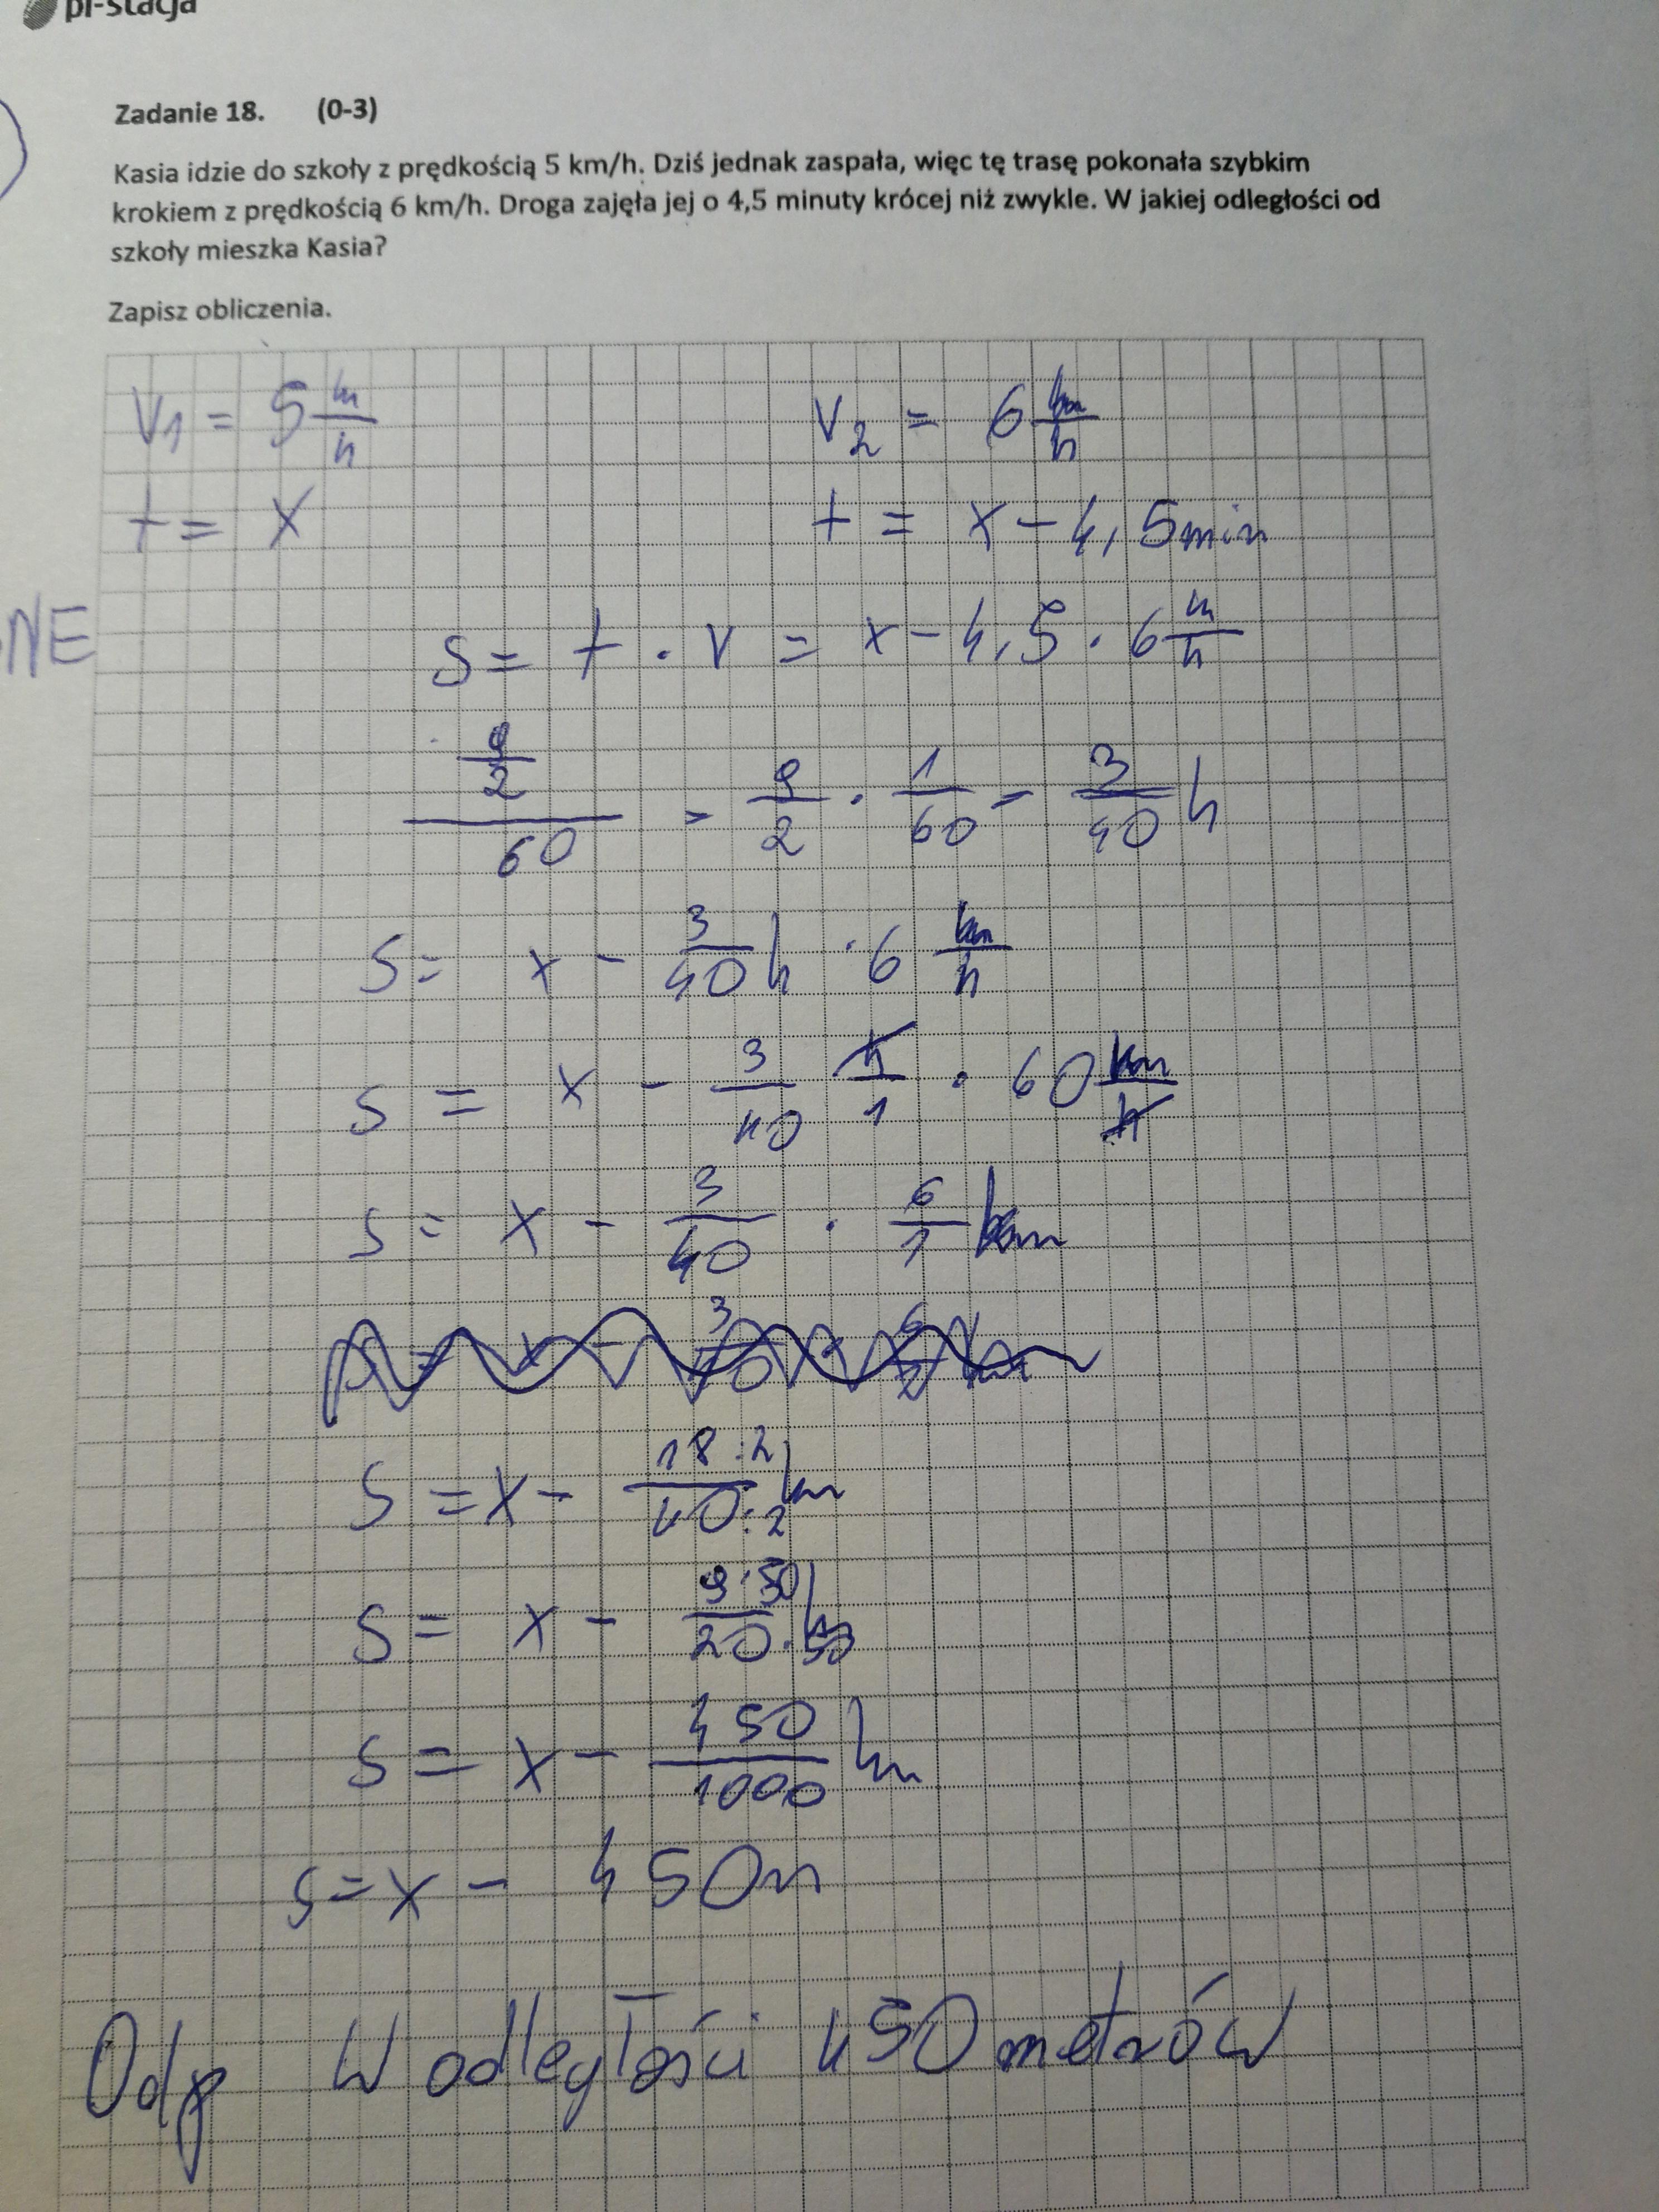 pi-stacja
Zadanie 18. (0-3)
Kasia idzie do szkoły z prędkością 5 km/h. Dziś jednak zaspała, więc tę trasę pokonała szybkim
krokiem z prędkością 6 km/h. Droga zajęła jej o 4,5 minuty krócej niż zwykle. W jakiej odległości od
szkoły mieszka Kasia?
Zapisz obliczenia.
V₁ = 5 m/h V₂ = 6 km/h
t = x t = x - 4,5min
NE
s = t · v = x - 4,5 · 6 m/h
9/2 / 60 = 9/2 · 1/60 = 3/40 h
s = x - 3/40 h · 6 km/h
s = x - 3/40 h/1 · 60 km/h
s = x - 3/40 · 6/1 km
s = x - 18:2/40:2 km
s = x - 9·50/20·50 km
s = x - 450/1000 km
s = x - 450m
Odp W odległości 450 metrów